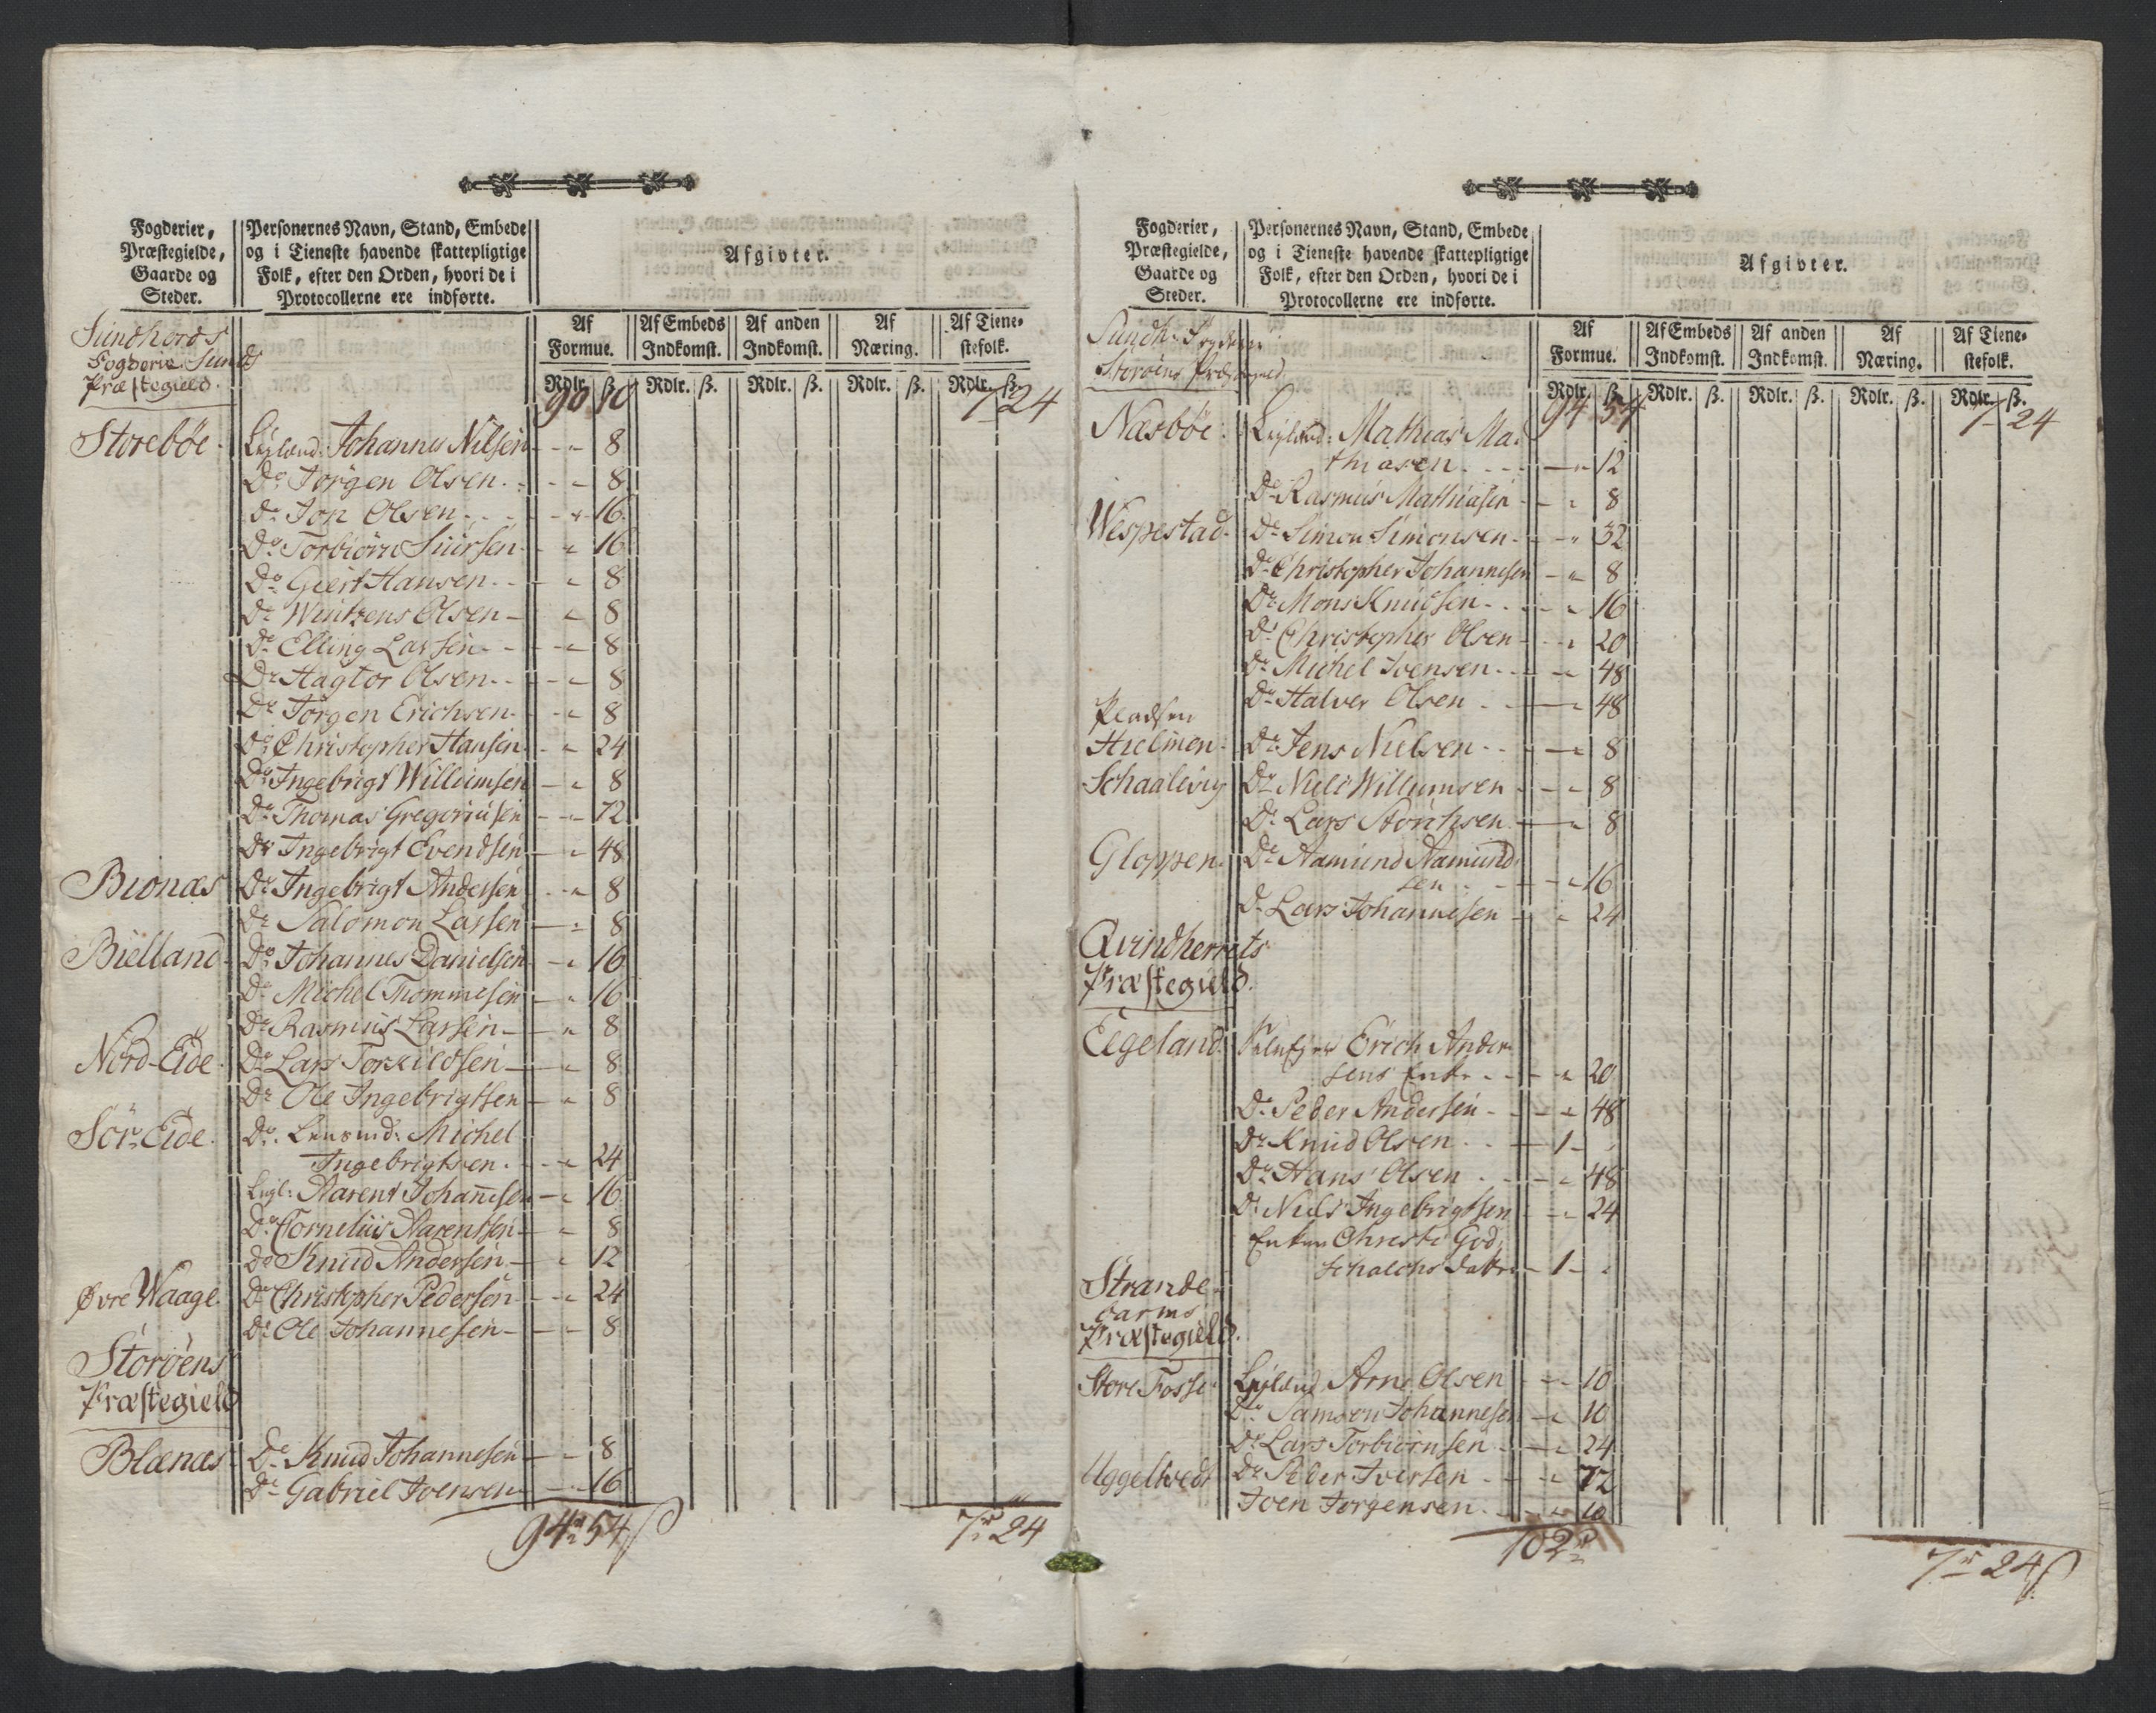 Fogderier, Præstegielde, Gaarde og Steder.
Personernes Navn, Stand, Embede og i Tieneste havende skattepligtige Folk, efter den Orden, hvori de i Protocollerne ere indførte.
Afgivter.
Af Formue. Af Embeds Indkomst. Af anden Indkomst. Af Næring. Af Tienestefolk.
Rdlr. ß. Rdlr. ß. Rdlr. ß. Rdlr. ß. Rdlr. ß.
Sundhords
Fogderie Sunds
Præstegield.
90 80 7 24
Storebøe Leylænd: Johannes Nilsen - " 8
Do Jörgen Olsen - - 8
do Jon Olsen - " 16
Do Torbiörn Siursen - " 16
Do Geert Hansen - " 8
Do Wintzens Olsen - " 8
Do Elling Larsen - " 8
Do Hagtor Olsen - - 8
Do Törgen Erichsen - " 8
Do Christopher Hansen - " 24
Do Ingebrigt Willumsen - " 8
Do Thomas Gregoriusen - " 72
Do Ingebrigt Evendsen - " 48
Bionæs Do Ingebrigt Andersen - " 8
Do Salomon Lassen - " 8
Bielland Do Johannes Danielsen - " 16
Do Michel Thommesen - " 16
Do Rasmus Larsen - " 8
Nord-Eide Do Lars Torkildsen - " 8
Do Ole Ingebrigtsen - " 8
Sör Eide Do Lensmd: Michel
Ingebrigtsen - " 24
Leyl: Aarent Johannesen - " 16
Do Cornelius Aarentsen - " 8
Do Knud Andersen - " 12
Øvre Waage Do Christopher Pedersen - " 24
Do Ole Johannesen - - 8
Storöens
Præstegield
Blænæs Do Knud Johannesen - - 8
Do Gabriel Joensen - - 16
94 rd 54 ß 7 rd 24
Fogderier, Præstegielde, Gaarde og Steder.
Personernes Navn, Stand, Embede og i Tieneste havende skattepligtige Folk, efter den Orden, hvori de i Protocollerne ere indførte.
Afgivter.
Af Formue. Af Embeds Indkomst. Af anden Indkomst. Af Næring. Af Tienestefolk.
Rdlr. ß. Rdlr. ß. Rdlr. ß. Rdlr. ß. Rdlr. ß.
Sundh: Fogderie
Storöens Præstegield
94 54 7 24
Næsböe Leylænd: Mathias Ma-
thiasen - " 12
Do Rasmus Mathiasen - " 8
Wespestad Do Simon Simonsen - " 32
Do Christopher Johannesen - " 8
Do Mons Knudsen - " 16
Do Christopher Olsen - " 20
Do Michel Joensen - " 48
Do Halver Olsen - " 48
Pladsen
Hielmen Do Jens Nielsen - " 8
Schaalevig Do Niels Willumsen - " 8
Do Lars Störchsen - " 8
Gloppen Do Aamund Aamund-
sen - " 16
Do Lars Johannesen - " 24
Qvindherrets
Præstegield.
Eegeland Erich Ander-
sens Enke - " 20
Do Peder Andersen - " 48
Do Knud Olsen - 1 - "
Do Hans Olsen - " 48
Do Niels Ingebrigtsen - " 24
Enken Christi God-
schalchs datter - 1 - "
Strande-
barms
Præstegield.
Store Fosse Leylænd Arne Olsen - - 10
Do Samson Johannesen - " 10
Do Lars Torbiörnsen - " 24
Uggelhvedt Do Peder Iversen - " 72
Joen Jörgensen - " 10
102 rd 7 rd 24 ß